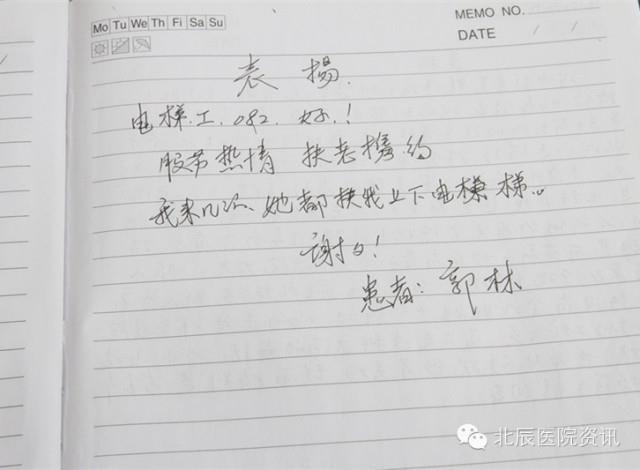 Mo Tu We Th Fr Sa Su
MEMO NO.
DATE / /
表 揚.
电梯.工.082.好.!
服务热情 扶老携幼
我来几次.她都扶我上下电梯 梯..
谢谢!
患者:郭林
北辰医院资讯